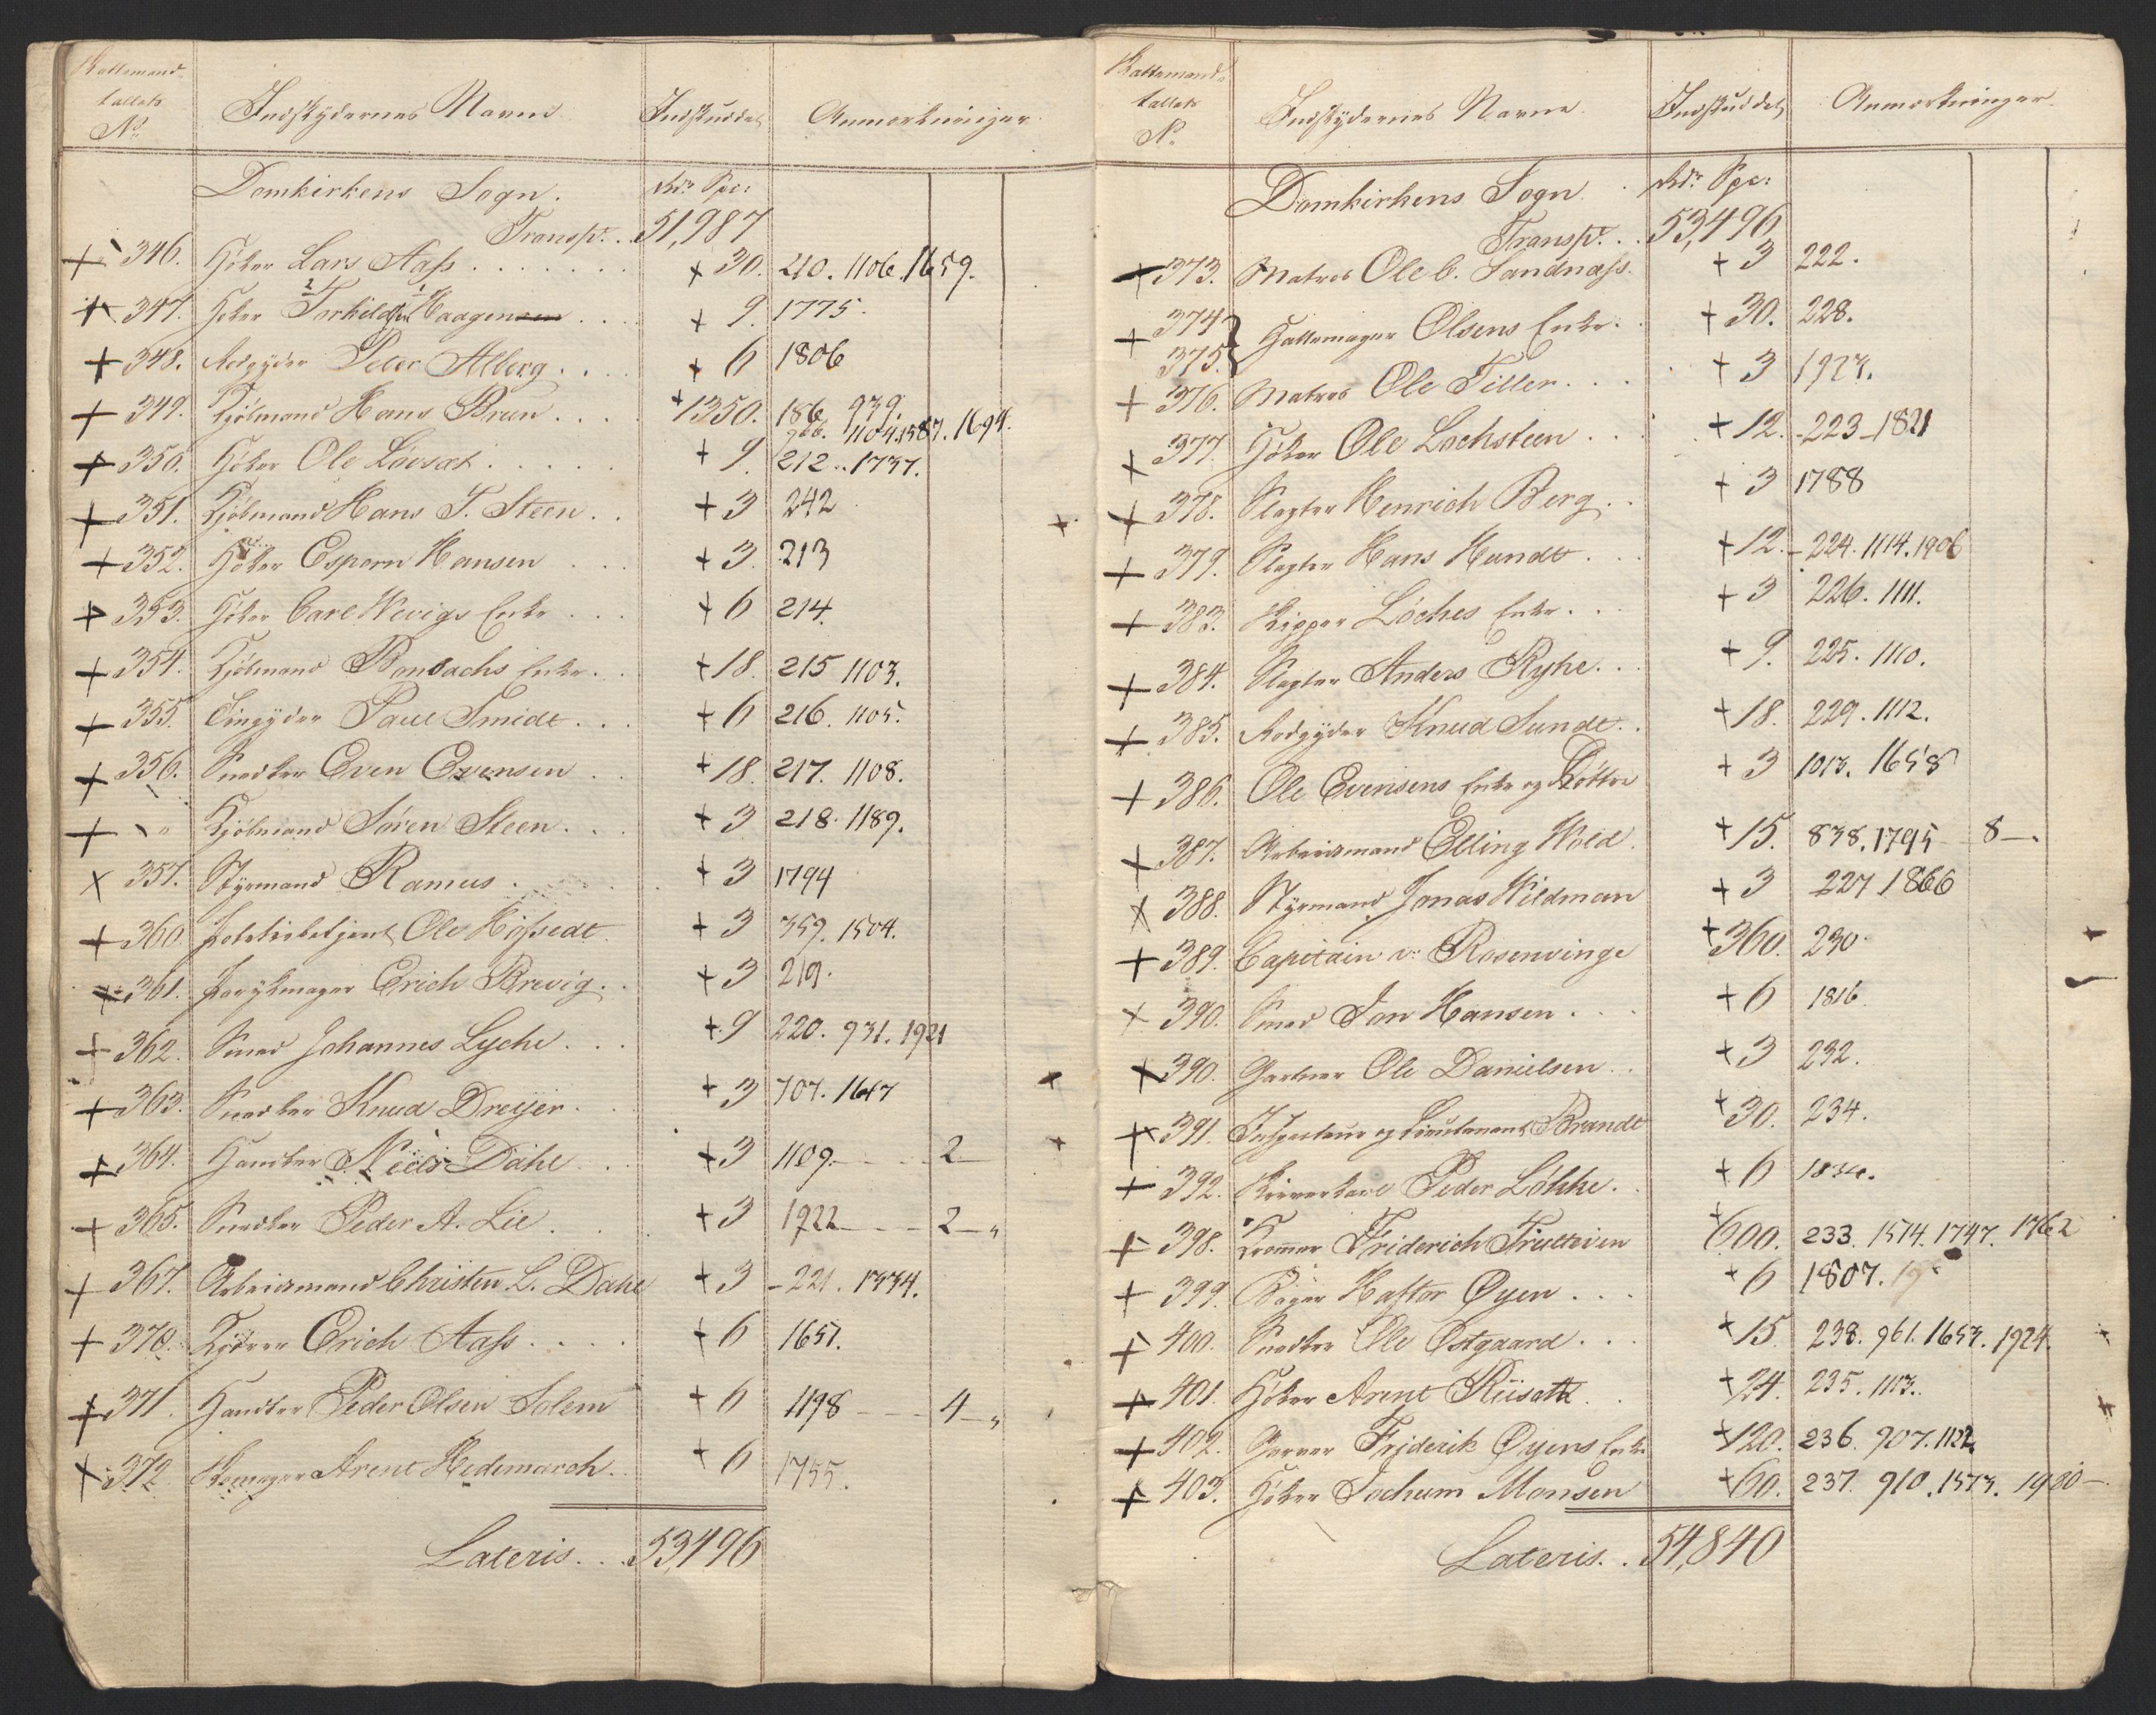 Skattemand-
tallets
No.
Indskydernes Navne
Indskuddet
Anmærkninger.
Domkirkens Sogn.
Rdr. Spc:
Transpt. . 51,987
346. Høker Lars Aass . . . + 30. 210. 1106. 1659.
347. Høker Torkild Haagensen . . + 9. 1775.
348. Rodgyder Peter Alberg . . + 6 1806
349. Kjøbmand Hans Brun . . + 1350. 186. 939. 1104. 1587. 1694.
350. Høker Ole Løvsæt . . . + 9. 212. . 1737.
351. Kjøbmand Hans T. Steen . . + 3 242
352. Høker Espern Hansen . . + 3. 213
353. Høker Carl Wevigs Enke . . + 6 214.
354. Kjøbmand Bonsachs Enke . . + 18. 215 1103.
355. Tingyder Paul Smidt . . . + 6 216. 1105.
356. Snedker Even Evensen . . + 18. 217. 1108.
" Kjøbmand Søren Steen . . + 3 218. 1189.
357. Styrmand Ramus . . + 3 1794
360. Politiebetjent Ole Høfsedt + 3 359. 1504.
361. Parykmager Erich Brevig . . + 3 219.
362. Smed Johannes Lyche . . . + 9 220. 931. 1921
363. Snedker Knud Dreyer . . + 3 707. 1647
364. Handker Niels Dahl . . + 3 1109. - - - 2 -
365. Snedker Peder A. Lie . . + 3 1922 - - - 2 - "
367. Arbeidsmand Christen L. Dahl + 3 - 221. 1334.
370. Kjører Erich Aass . . . + 6 1651.
371. Handker Peder Olsen Solem + 6 1198 - - - 4 - "
372. Skomager Arent Hedemarch . + 6 1755.
Lateris. . . 53,496
Skattemand-
tallets
No.
Indskydernes Navne.
Indskuddet
Anmærkninger.
Domkirkens Sogn.
Rdr. Spc:
Transpt. . . 53,496
373. Matros Ole C. Sandnæss. + 3 222.
374
375. } Hattemager Olsens Enke . + 30. 228.
376. Matros Ole Tiller . . . + 3 1923.
377. Høker Ole Lochsteen . . + 12. - 223 - 1821
378. Slagter Henrich Berg . . + 3 1788
379. Slagter Hans Hundt . . + 12. - 224. 1114. 1906
383. Skipper Løches Enke . . + 3 226. 1111.
384. Slagter Anders Ryhe . . + 9. 225. 1110.
385. Rodgyder Knud Sundt . . + 18. 229. 1112.
386. Ole Evensens Enke og Døttre + 3 1013. 1658
387. Arbeidsmand Elling Wold . + 15. 838. 1795 - 8 - "
388. Styrmand Jonas Wildman + 3 227 1866
389. Capitain v. Rosenvinge + 360. 230.
390. Smed Jon Hansen . . . + 6 1816.
390. Gartner Ole Danielsen . . + 3 232.
391. Inspecteur og Lieutenant Brandt + 30. 234.
392. Peder Løkke . . + 6 1834.
398. Kræmer Friderich Trulteiven + 600. 233. 1514. 1747. 1762
399. Bager Haftor Øyen . . . + 6 1807.
400. Snedker Ole Østgaard . . . + 15 238. 961. 1653. 1924.
401. Høker Arent Riisæth . . + 24. 235. 1113.
402. Garver Friderik Øyens Enke + 120. 236. 907. 1122.
403. Høker Jochum Monsen + 60. 237. 910. 1573. 1920 -
Lateris. . 54,840